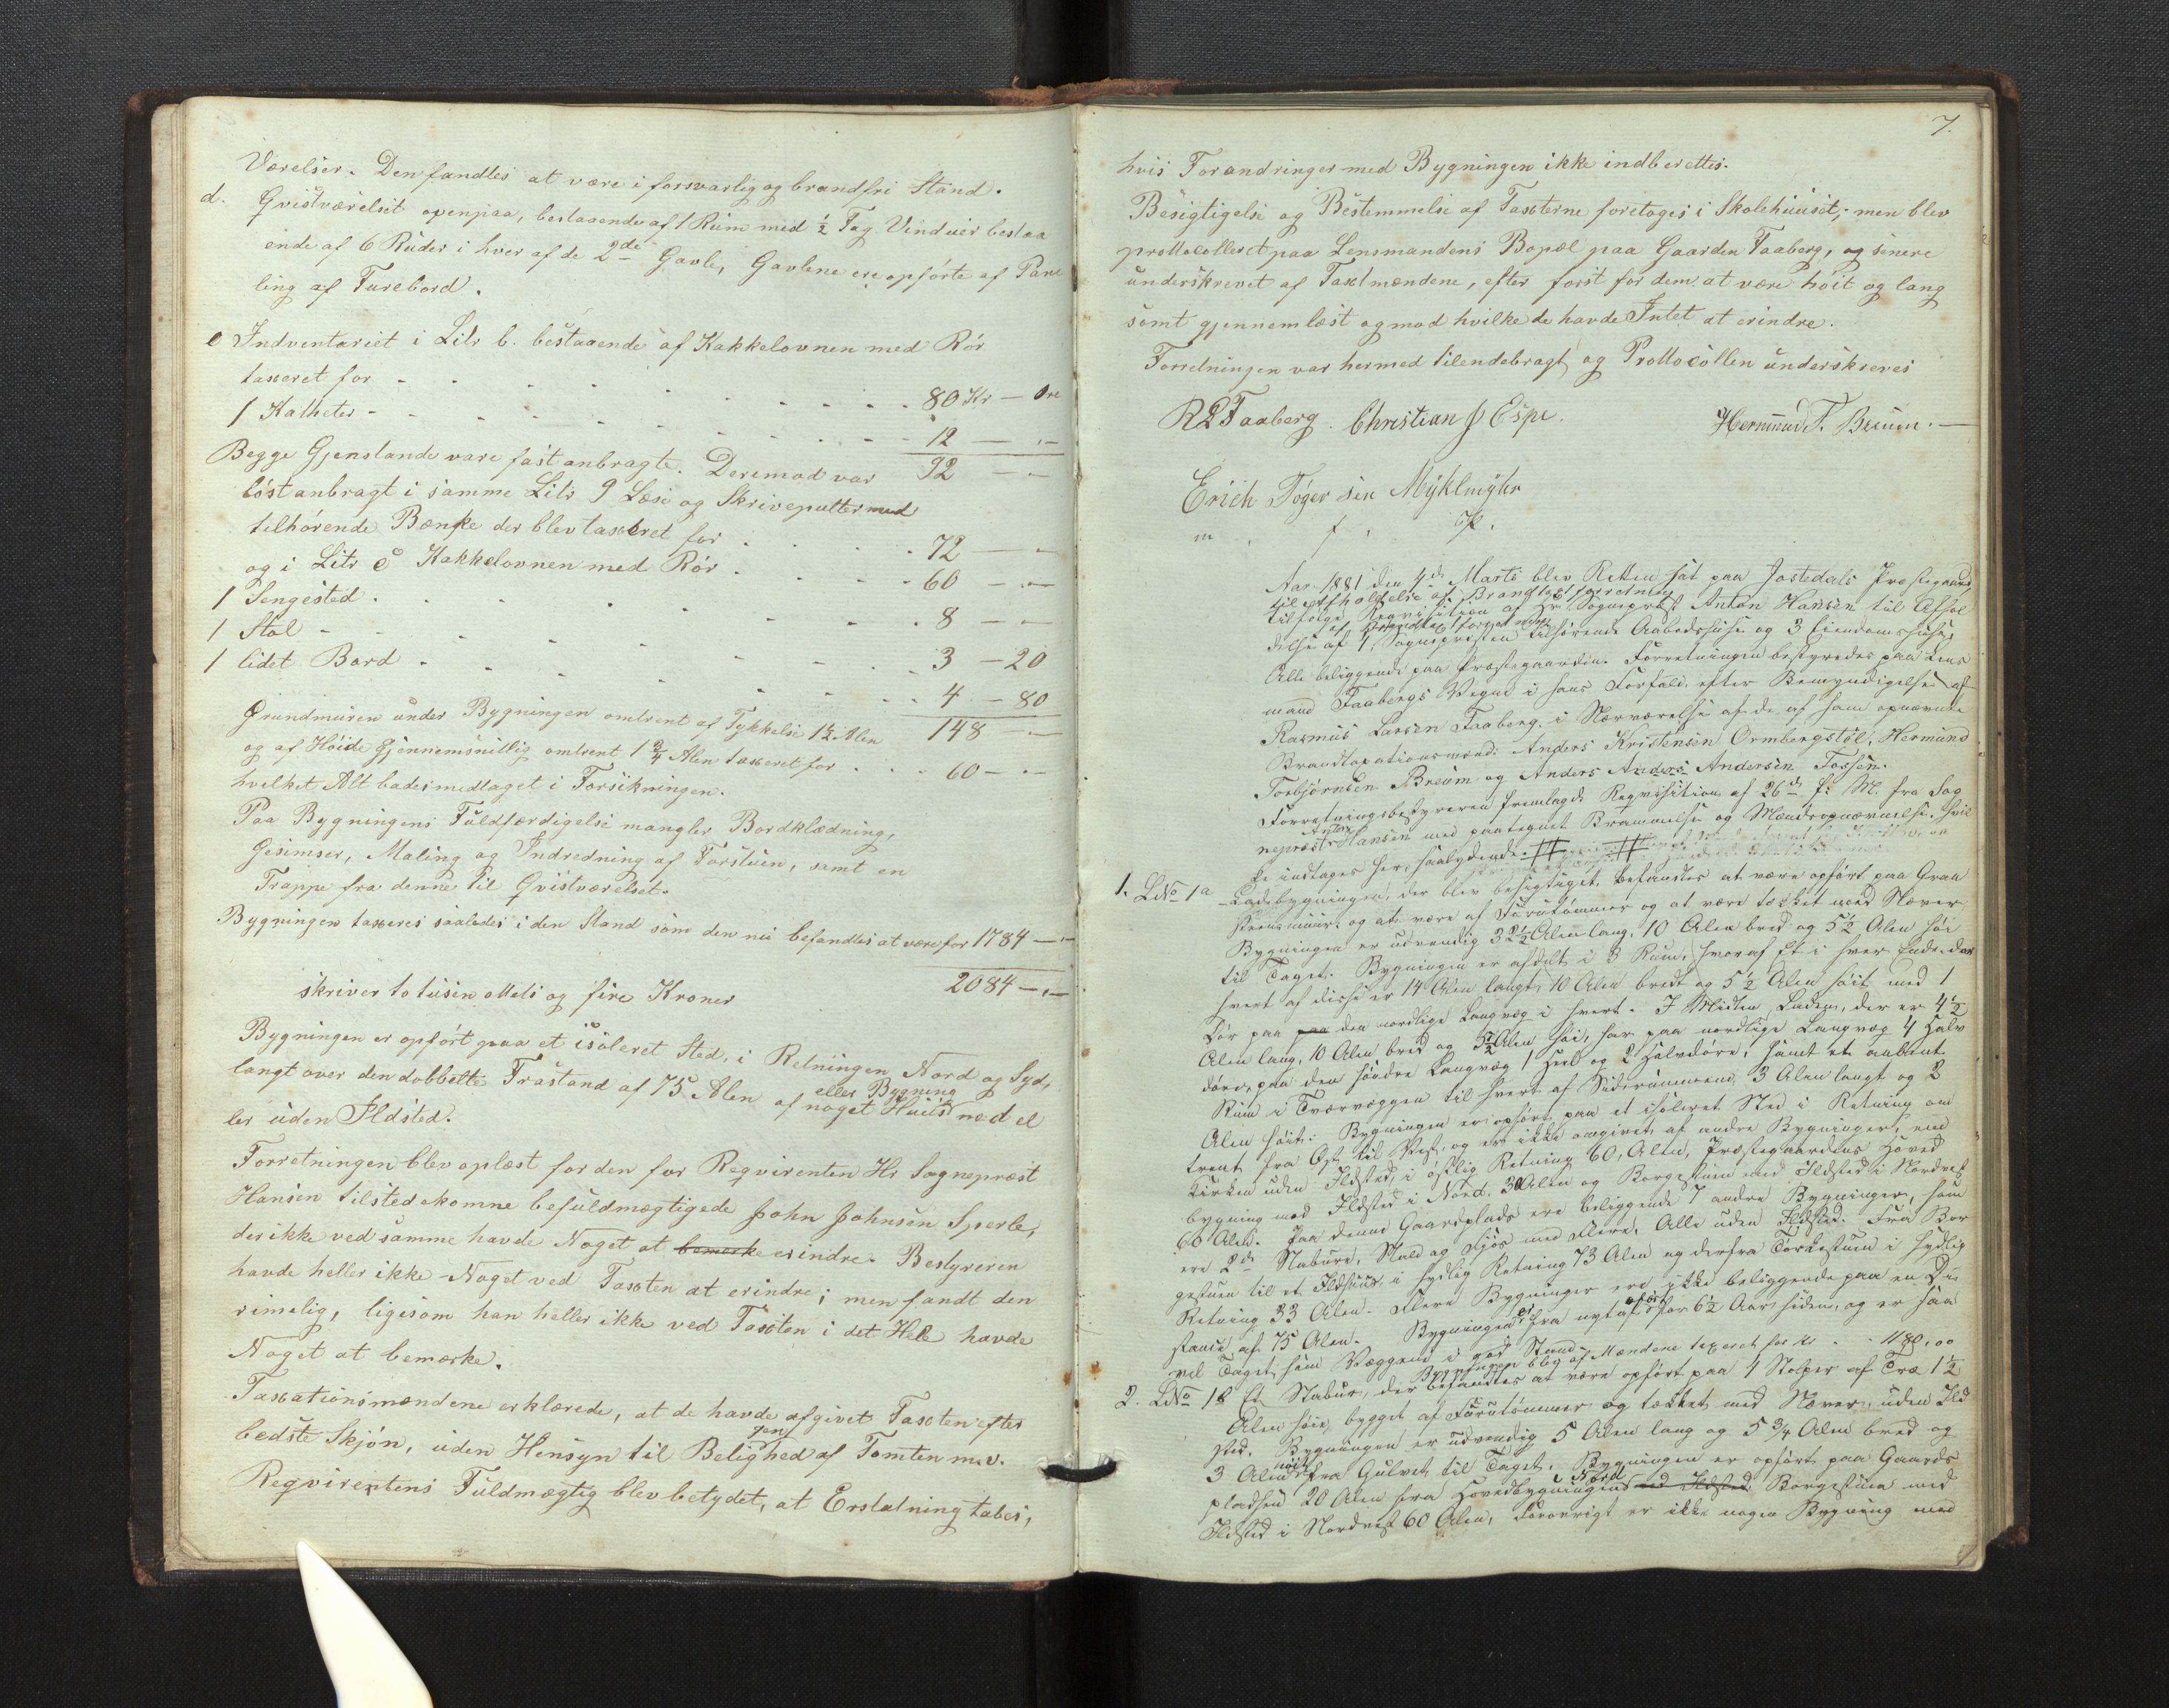 Værelser. Den fandtes at være i forsvarlig og brandfri Stand.
d. Qvistværelset ovenpaa, bestaaende af 1 Rum med ½ Fag Vinduer bestaa
ende af 6 Ruder i hver af de 2de Gavle, Gavlene ere opførte af Pane
ling af Furebord.
e Indventariet i Litr b. bestaaende af Kakkelovnen med Rör
taxeret for - - - 80 Kr - Øre
1 Katheter - - - 12 — „-
Begge Gjenstande vare fast anbragte. Deremod var 92 — „-
löst anbragt i samme Litr 9 Læse og Skrivepulter med
tilhörende Bænke der blev taxeret for . . . 72 — „-
og i Litr c Kakkelovnen med Rör . . . 60 — „-
1 Sengested . . . 8 — „-
1 Stol - - - 3 - 20
1 lidet Bord - - - 4 - 80
Grundmuren under Bygningen omtrent af Tykkelse 1½ Alen 148 — „-
og af Höide Gjennemsnitlig omtrent 1¾ Alen taxeret for . . . 60 - „-
hvilket Alt bades medtaget i Forsikringen.
Paa Bygningens Fuldfærdigelse mangler Bordklædning,
Gesimser, Maling og Indredning af Forstuen, samt en
Trappe fra denne til Qvistværelset.
Bygningen taxeres saaledes i den Stand som den nu befandtes at være for 1784 — „-
2084 - „-
skriver to tusin otteti og fire Kroner
Bygningen er opfört paa et isoleret Sted, i Retningen Nord og Syd,
langt over den dobbelte Frastand af 75 Alen af noget Huus eller Bygning med el
ler uden Ildsted.
Forretningen blev oplæst for den for Reqvirenten Hr Sognepræst
Hansen tilstedekomne befuldmægtigede John Johnsen Sperle,
der ikke ved samme havde Noget at bemærke erindre. Bestyreren
havde heller ikke Noget ved Taxten at erindre; men fandt den
rimelig, ligesom han heller ikke ved Taxten i det Hele havde
Noget at bemærke.
Taxationsmændene erklærede, at de havde afgivet Taxten efter
bedste Skjön, uden Hensyn til Beliggenhed af Tomten m.v.
Reqvirentens Fuldmægtig blev betydet, at Erstatning tabes,
7.
hvis Forandringer med Bygningen ikke indberettes.
Besigtigelse og Bestemmelse af Taxterne foretoges i Skolehuuset; men blev
prottocolleret paa Lensmandens Bopæl paa Gaarden Faaberg, og senere
underskrevet af Taxtmændene, efter först for dem at være höit og lang
somt gjennemlæst og mod hvilke de havde Intet at erindre.
Forretningen var hermed tilendebragt og Prottocollen underskreves
R L Faaberg. Christian J Espe. Hermund T. Breum.
Erich Töger sen Myklmyhr
m. f. P.
Aar 1881 den 4de Marts blev Retten sat paa Jostedals Præstegaard
til Afholdelse af Brandtaxtforretning
tilfölge Reqvisition af Hr Sognepræst Anton Hansen til Afhol
delse af Brandtaxtforretning
af 1 Sognepresten tilhörende Aabodshuse og 3 Eiendomshuse
Alle beliggende paa Præstegaarden. Forretningen bestyredes paa Lens
mand Faabergs Vegne i hans Forfald efter Bemyndigelse af
Rasmus Larsen Faaberg i Nærværelse af de af ham opnævnte
Brandtaxationsmænd: Anders Kristensen Ormbergstöl, Hermund
Torbjörnsen Breum og Anders Anders Andersen Fossen.
Forretningsbestyreren fremlagde Reqvisition af 26de f: M. fra Sog
nepræst Anton Hansen med paategnet Berammelse og Mændsopnævnelse, hvil
ke indtages her, saalydende:
1. LNo 1a Ladebygningen, der blev besigtiget, befandtes at være opfört paa Graa
steensmuur og at være af Furutömmer og at være tækket med Næver
Bygningen er udvendig 32½ Alen lang, 10 Alen bred og 5½ Alen höi
til Taget. Bygningen er afdelt i 3 Rum, hvoraf Et i hver Ende der
hvert af disse er 14 Alen langt, 10 Alen bredt og 5½ Alen höit med 1
Dör paa paa den nordlige Langvæg i hvert. I Midten Laden, der er 4½
Alen lang, 10 Alen bred og 5½ Alen höi, har paa nordlige Langvæg 4 Halv
döre, paa den söndre Langvæg 1 Heel og 2 Halvdöre, samt et aabent
Rum i Tværvæggen til hvert af Siderummene, 3 Alen langt og 2
Alen höit. Bygningen er opfört paa et isoleret Sted i Retning om
trent fra Öst til Vest, og er ikke omgivet af andre Bygninger, end
Kirken uden Ildsted, i östlig Retning 60 Alen, Præstegaardens Hoved
bygning med Ildsted i Nord 30 Alen og Borgestuen med Ildsted i Nordvest
60 Alen. Paa denne Gaardsplads ere beliggende 7 andre Bygninger, som
ere 2de Stabure, Stald og Fjös med Flere, Alle uden Ildsted. Fra Bor
gestuen til et Ildhuus i sydlig Retning 73 Alen og derfra Törkestuen i sydlig
Retning 33 Alen. Flere Bygninger ere ikke beliggende paa en Di
stance af 75 Alen. Bygningen er fra nyt af opfört for 6½ Aar siden, og er saa
vel Taget som Væggene i god Stand.
Bygningen blev af Mændene taxeret for Kr . . 1180,00
2. LNo 18 Et Stabur, der befandtes at være opfört paa 4 Stolper af Træ 1½
Alen höie, bygget af Furutömmer og tækket med Næver, uden Ild
sted. Bygningen er udvendig 5 Alen lang og 5¾ Alen bred og
3 Alen höi fra Gulvet til Taget. Bygningen er opfört paa Gaards
pladsen 20 Alen fra Hovedbygningen i Nord med Ildsted Borgestuen med
Ildsted i Nordvest 60 Alen, Forövrigt er ikke nogen Bygning med